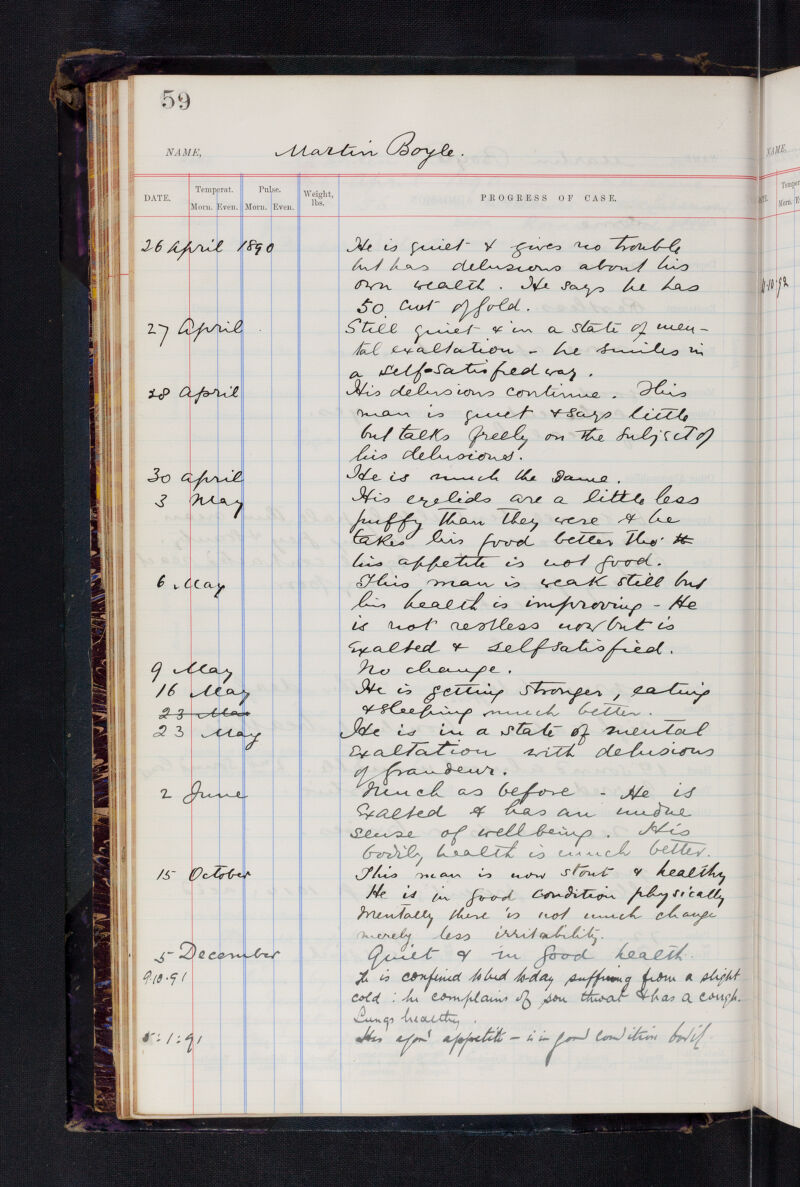 59
NAME, Martin Boyle.
DATE. Temperat. Morn. Even. Pulse. Morn. Even. Weight, lbs. PROGRESS OF CASE.
26 April 1890 He is quiet & gives no trouble
but has delusions about his
own wealth. He says he has
50 Cwt of gold.
27 April Still quiet & in a state of men-
tal exaltation - he smiles in
a self-satisfied way.
28 April His delusions continue. This
man is quiet & says little
but talks freely on the subject of
his delusions.
30 April He is much the same.
3 May His eyelids are a little less
puffy than they were & he
takes his food better tho'
his appetite is not good.
6 May This man is weak still but
his health is improving - He
is not restless now but is
exalted & selfsatisfied.
9 May No change.
16 May He is getting stronger, eating
23 May & sleeping much better.
23 May He is in a state of mental
Exaltation with delusions
of grandeur.
2 June Much as before - He is
Exalted & has an undue
sense of wellbeing. His
bodily health is much better.
15 October This man is now stout & healthy
He is in good condition physically
Mentally there is not much change
merely less irritability.
5 December Quiet & in good health.
9.10.91 He is confined to bed today suffering from a slight
cold : he complains of sore throat & has a cough.
Lungs healthy
5:1:91 Has a good appetite - is in good condition
NAME.